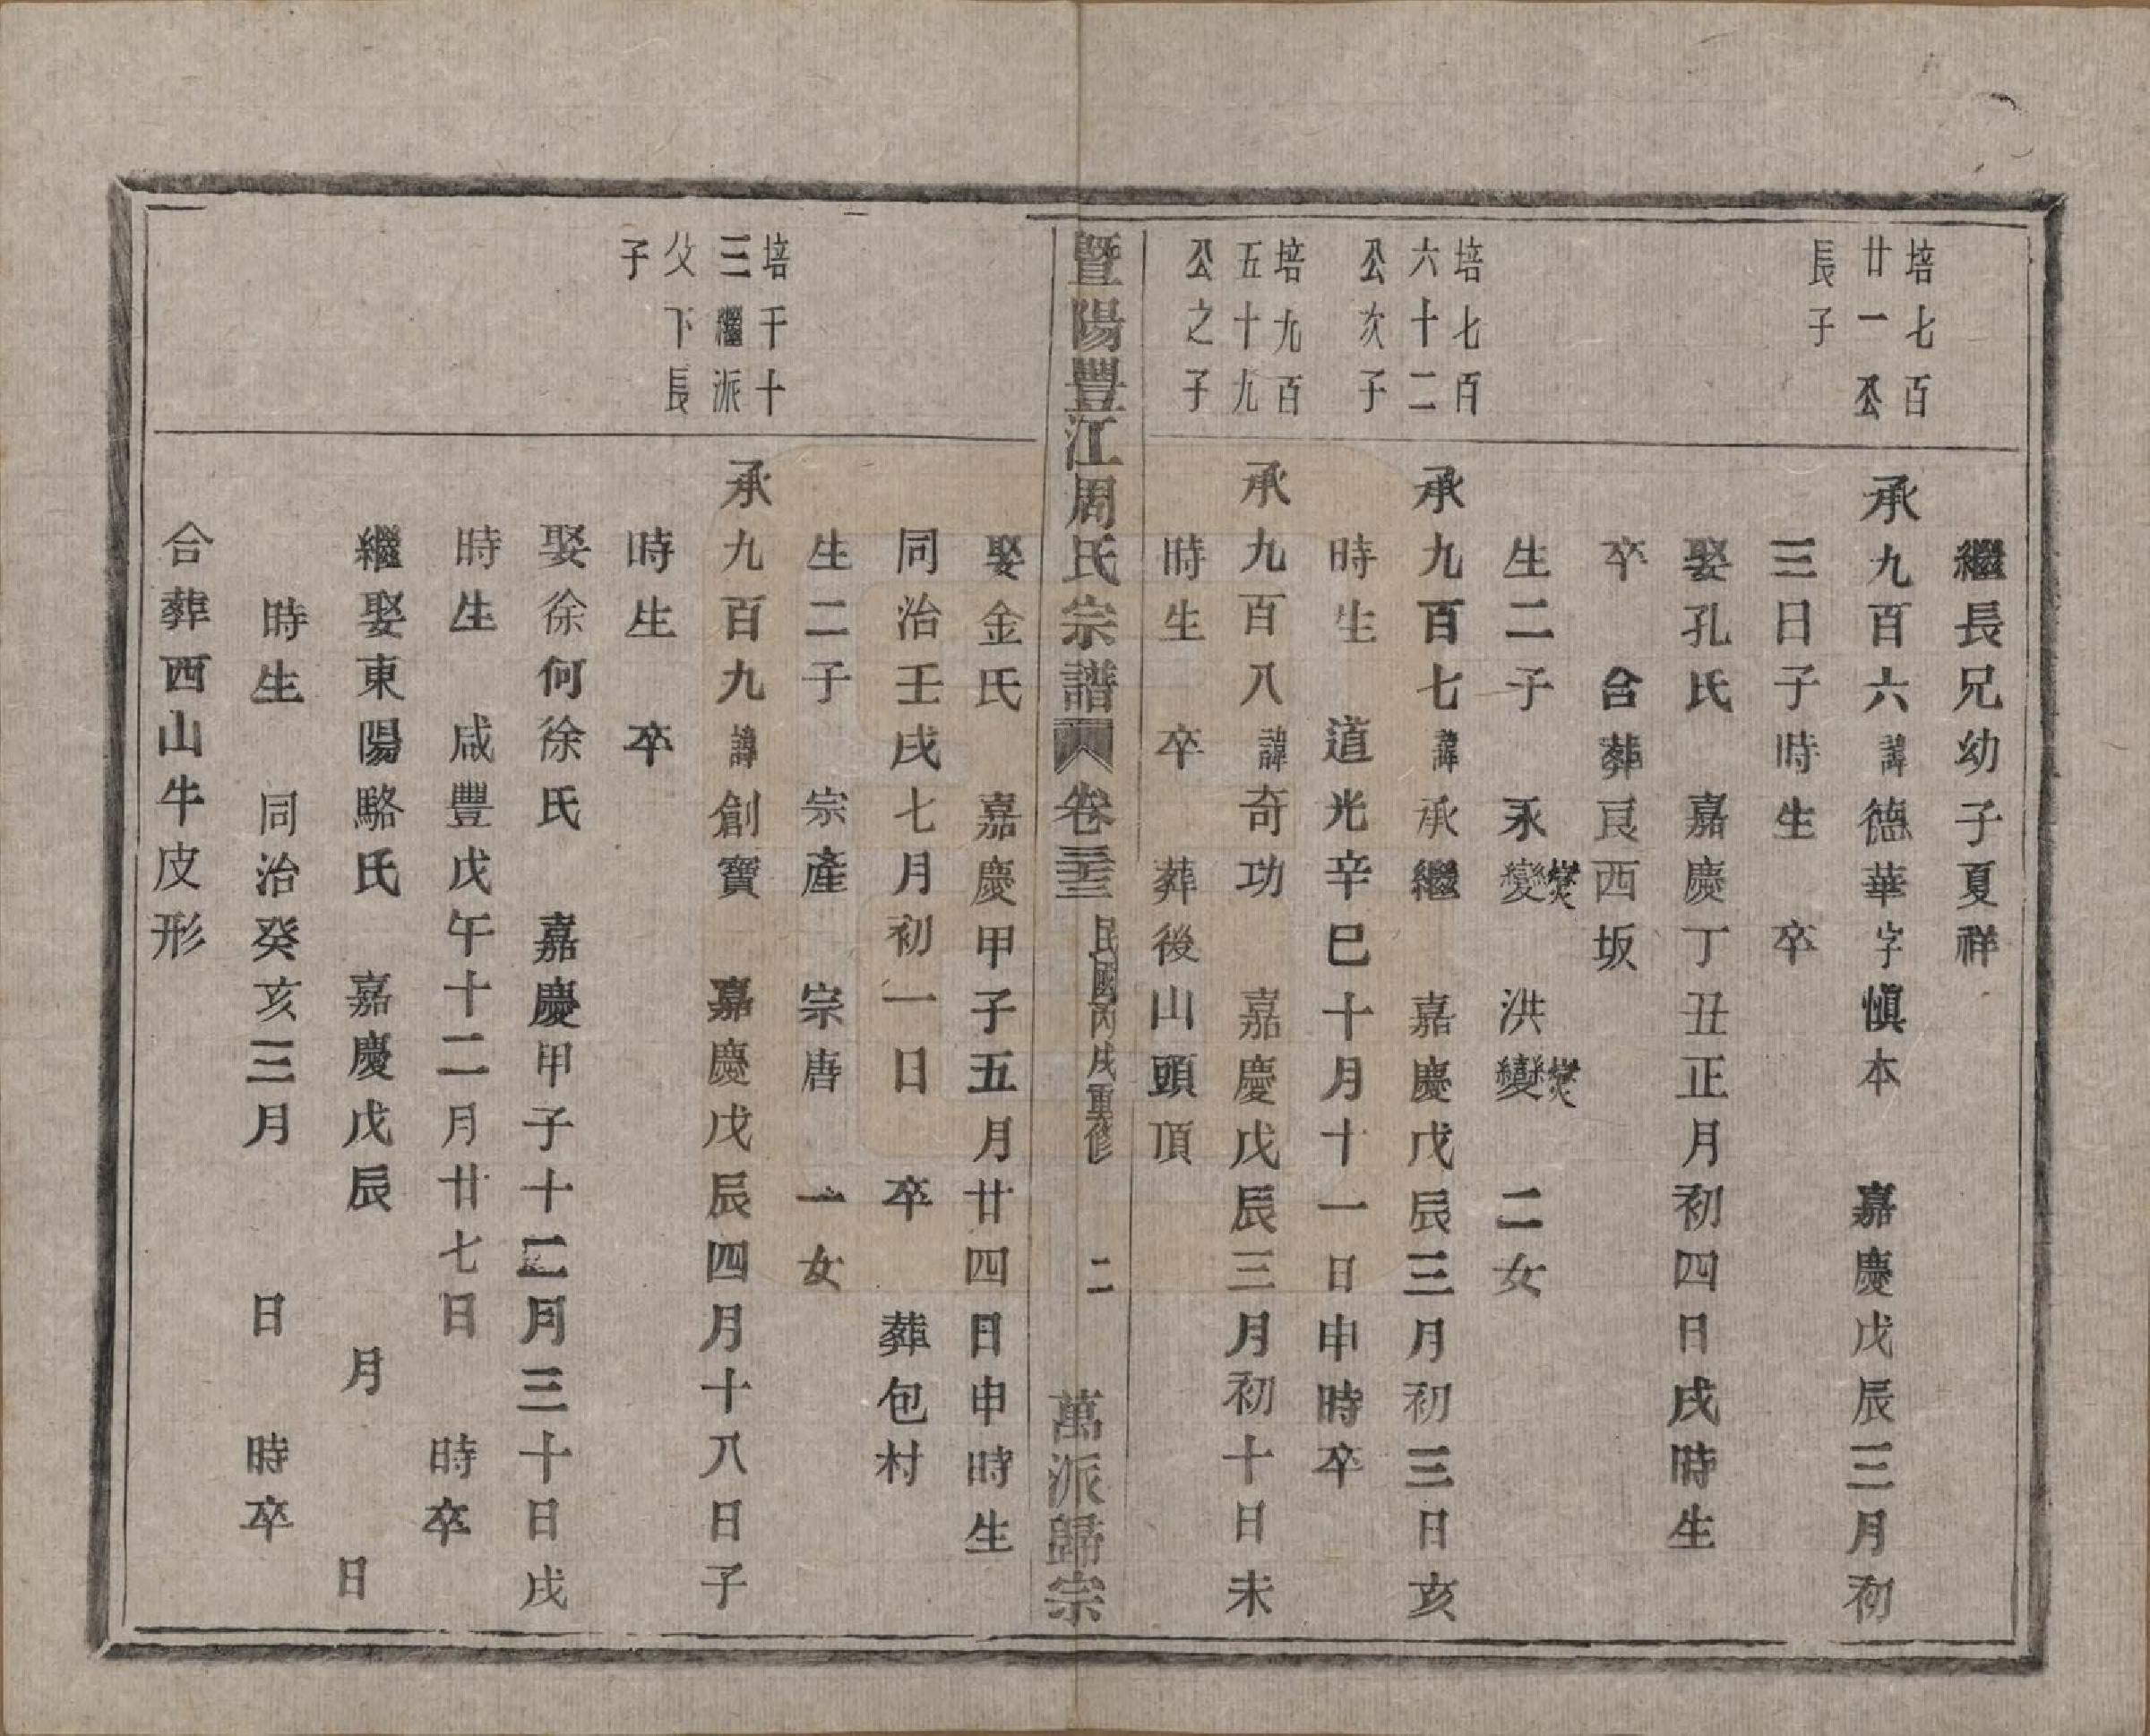 繼長兄幼子夏祥
培七百
廿一公
長子
承九百六諱德華字慎本　嘉慶戊辰三月初
三日子時生　卒
娶孔氏　嘉慶丁丑正月初四日戌時生
卒　合葬艮西坂
生二子　永變　洪變　二女
培七百
六十二
公次子
承九百七諱承繼　嘉慶戊辰三月初三日亥
時生　道光辛巳十月十一日申時卒
培九百
五十九
公之子
承九百八諱奇功　嘉慶戊辰三月初十日未
時生　卒　葬後山頭頂
暨陽豐江周氏宗譜　卷三十三　民國丙戌重修　二　萬派歸宗
娶金氏　嘉慶甲子五月廿四日申時生
同治壬戌七月初一日　卒　葬包村
生二子　宗產　宗唐　一女
培千十
三繼派
父下長
子
承九百九諱創寶　嘉慶戊辰四月十八日子
時生　卒
娶徐何徐氏　嘉慶甲子十二月三十日戌
時生　咸豐戊午十二月廿七日　時卒
繼娶東陽駱氏　嘉慶戊辰　月　日
時生　同治癸亥三月　日　時卒
合葬西山牛皮形